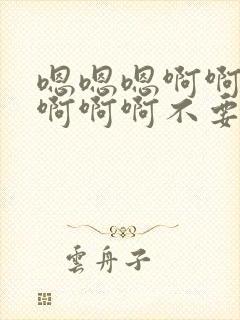 嗯嗯嗯啊啊
啊啊啊不要
雲舟子